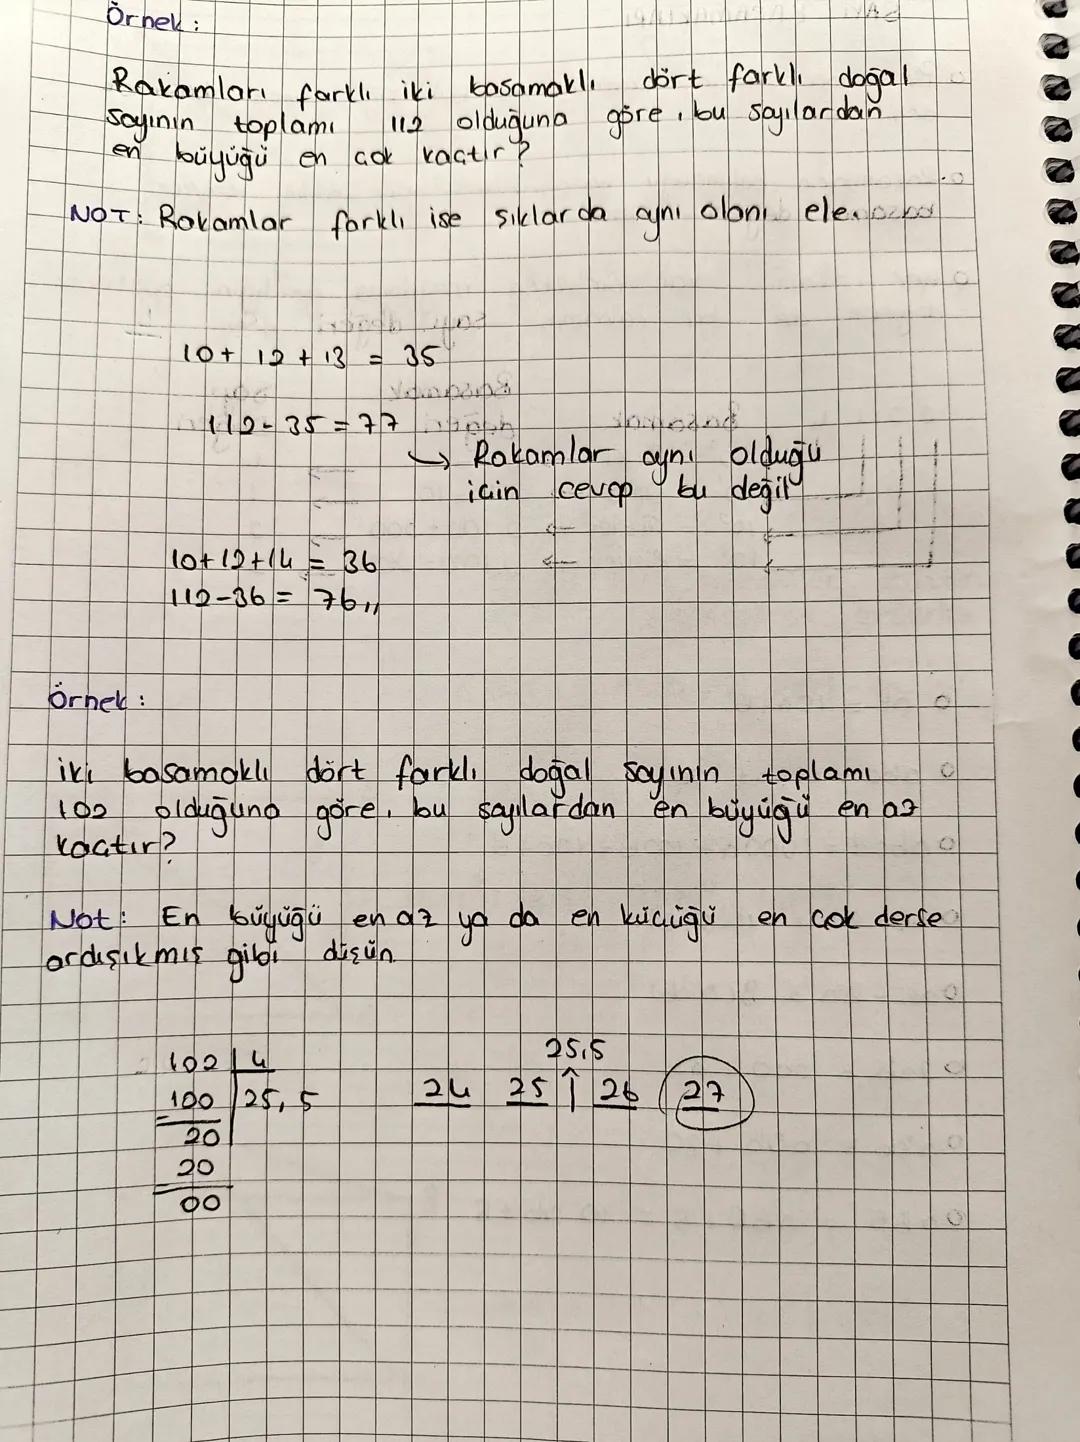 Örnek:
Rakamları farklı iki basamaklı dört farklı doğal
sayının toplamı 112 olduğuna göre, bu sayılardan
en büyüğü en çok kaçtır?
NOT: Rakamlar farklı ise şıklarda aynı olanı ele.
10+ 12 + 13 = 35
112- 35 = 77
↳ Rakamlar aynı olduğu
için cevap bu değil
10+12+14 = 36
112-36 = 76,,
Örnek:
iki basamaklı dört farklı doğal sayının toplamı
102 olduğuna göre, bu sayılardan en büyüğü en az
kaçtır?
Not: En büyüğü en az ya da en küçüğü en çok derse
ardışıkmış gibi düşün.
25,5
102 4
24 25 ↑ 26 27
100 25,5
20
20
00